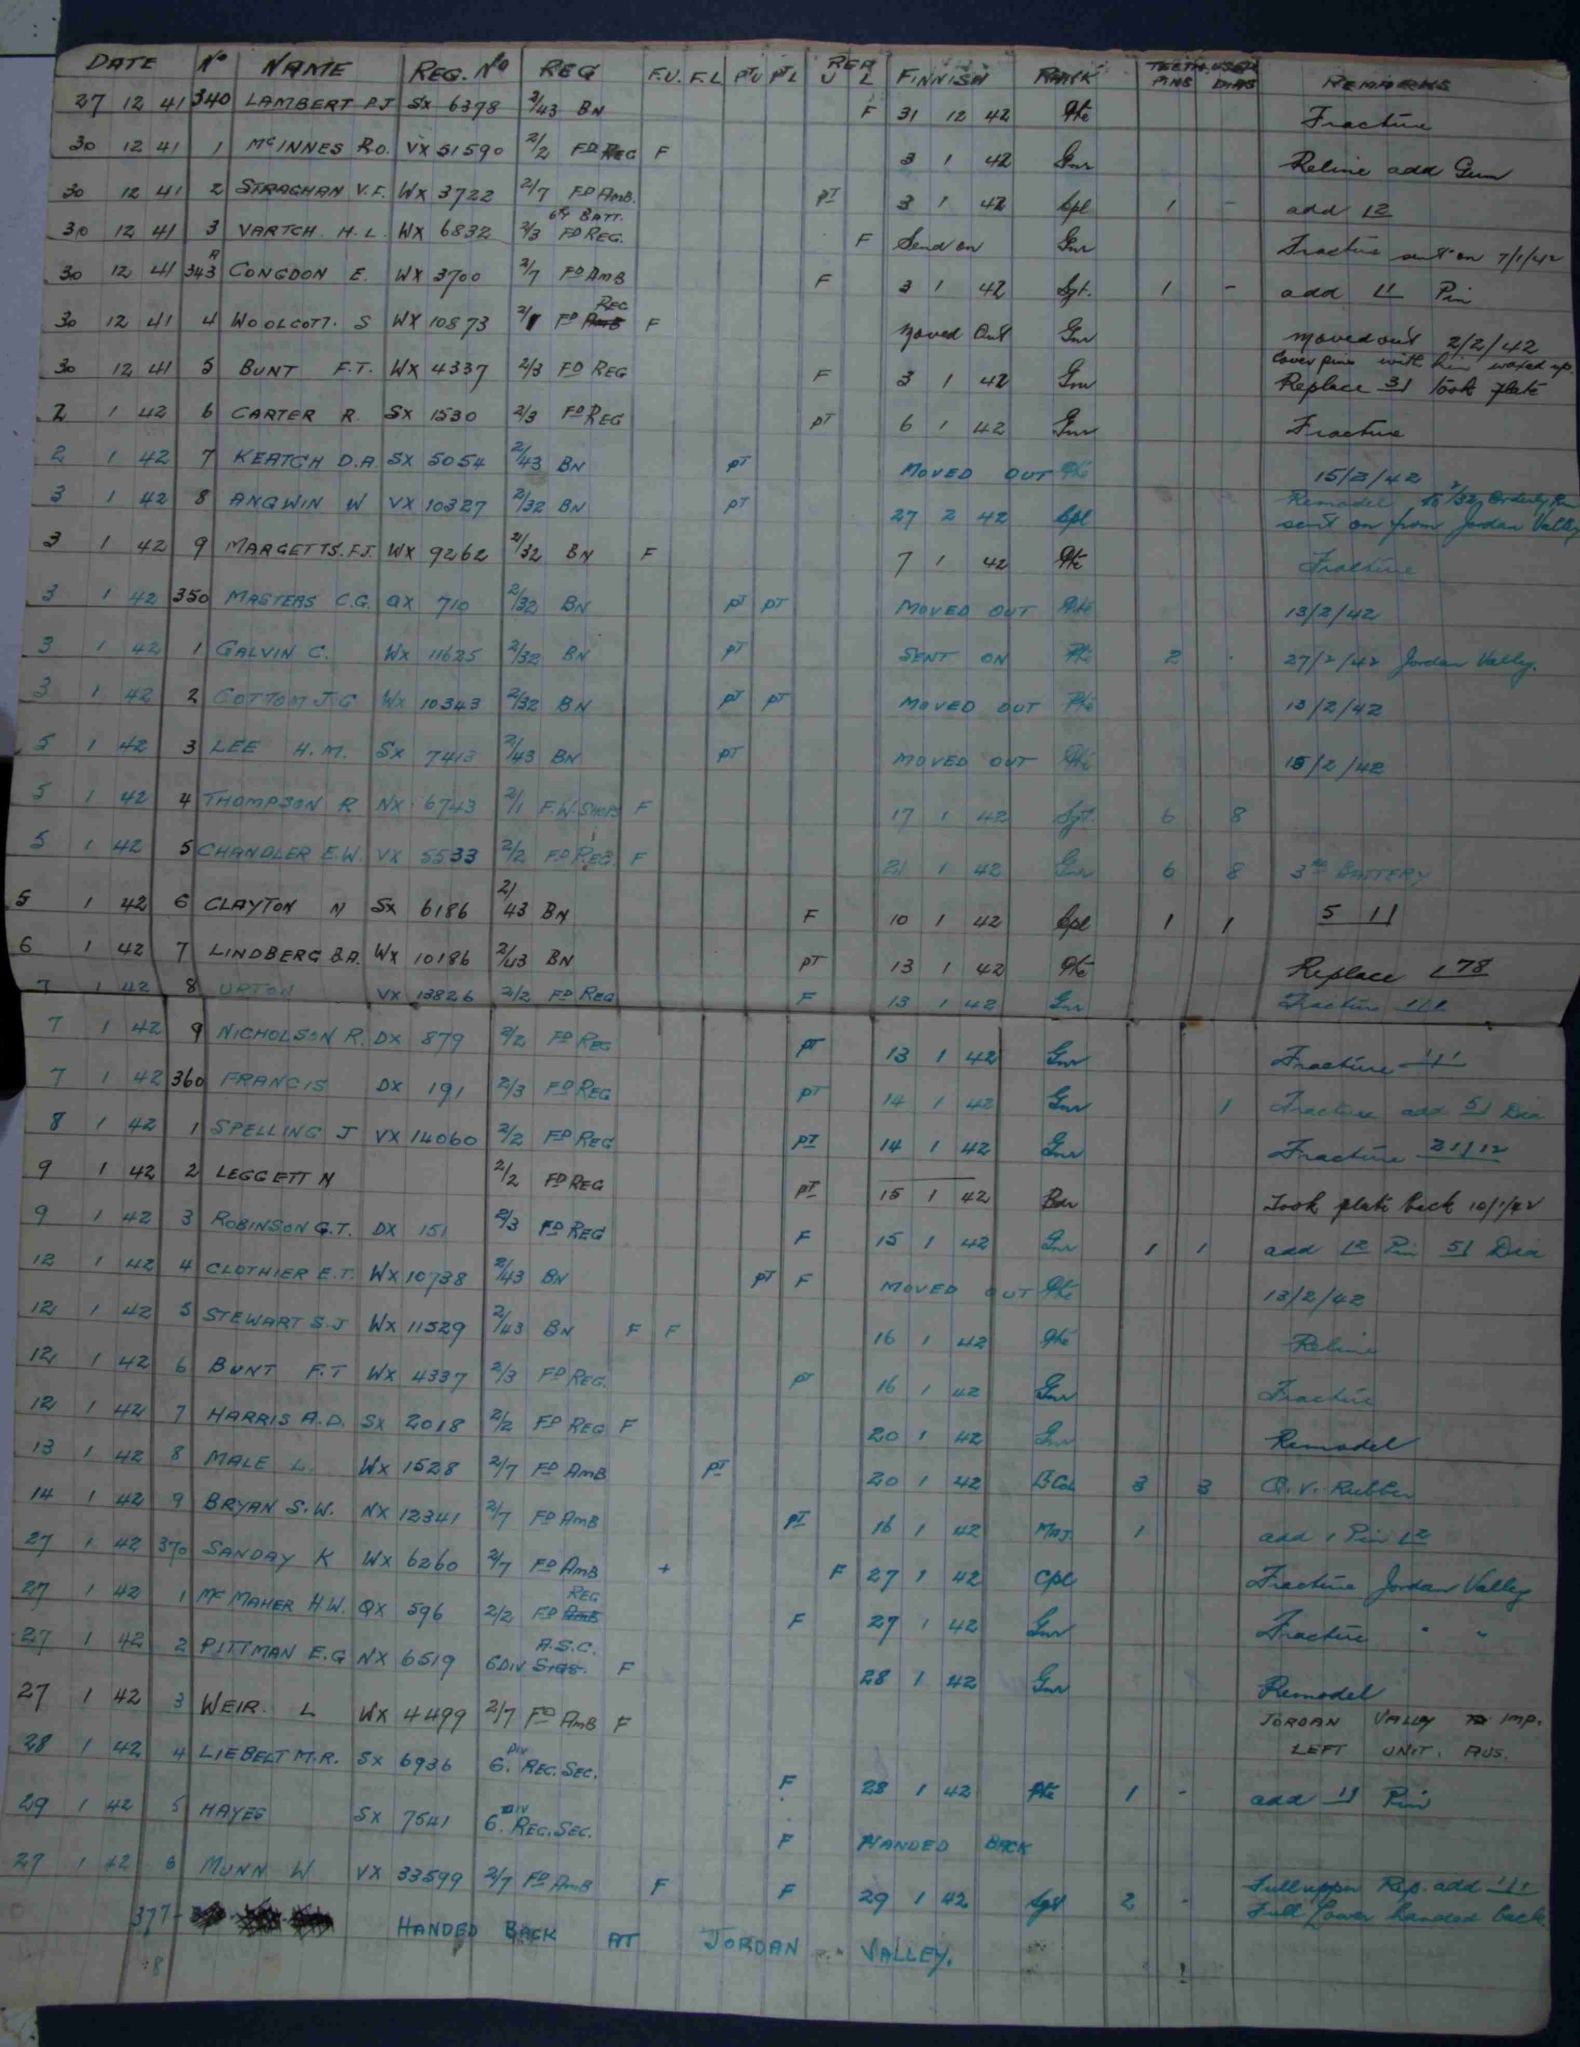 DATE No NAME REG. No REG F.U. F.L PTU PTL REP U L FINNISH RANK TEETH USED PINS DIAS REMARKS
27 12 41 340 LAMBERT P.J SX 6378 2/43 BN F 31 12 42 Pte Fracture
30 12 41 1 McINNES R.O. VX 51590 2/2 FD REG F 3 1 42 Gnr Reline add Gum
30 12 41 2 STRAGHAN V.F. WX 3722 2/7 FD AMB. PT 3 1 42 Cpl 1 - add L2
30 12 41 3 VARTCH. H.L. WX 6832 2/3 FD REG. 6th BATT. F Send on Gnr Fracture sent on 7/1/42
30 12 41 343 A CONGDON E. WX 3700 2/7 FD AMB F 3 1 42 Sgt. 1 - add 1| Pin
30 12 41 4 WOOLCOTT. S WX 10873 FD REG F Moved Out Gnr moved out 2/2/42
30 12 41 5 BUNT F.T. WX 4337 2/3 FD REG F 3 1 42 Gnr Cover pins with waxed up. Replace 3| took plate
2 1 42 6 CARTER R. SX 1530 2/3 FD REG PT 6 1 42 Gnr Fracture
2 1 42 7 KEATCH D.A SX 5054 2/43 BN PT MOVED OUT Pte 15/2/42
3 1 42 8 ANGWIN W VX 10327 2/32 BN PT 27 2 42 Cpl Remodel to 2/32 Orderly Rm sent on from Jordan Valley
3 1 42 9 MARGETTS. F.J. WX 9262 2/32 BN F 7 1 42 Pte Fracture
3 1 42 350 MASTERS C.G. QX 710 2/32 BN PT PT MOVED OUT Pte 13/2/42
3 1 42 1 GALVIN C. WX 11625 2/32 BN PT SENT ON Pte 2 - 27/2/42 Jordan Valley.
3 1 42 2 COTTOM J.G WX 10343 2/32 BN PT PT MOVED OUT Pte 13/2/42
5 1 42 3 LEE H.M. SX 7413 2/43 BN PT MOVED OUT Pte 15/2/42
5 1 42 4 THOMPSON R NX 6743 2/1 F.W. SHOPS F 17 1 42 Sgt. 6 8
5 1 42 5 CHANDLER E.W. VX 5533 2/2 FD REG. F 21 1 42 Gnr 6 8 3rd BATTERY
5 1 42 6 CLAYTON N SX 6186 2/43 BN F 10 1 42 Cpl 1 1 5 1|
6 1 42 7 LINDBERG B.A. WX 10186 2/43 BN PT 13 1 42 Pte Replace L78
7 1 42 8 URTON VX 13826 2/2 FD REG F 13 1 42 Gnr Fracture
7 1 42 9 NICHOLSON R. DX 879 2/2 FD REG PT 13 1 42 Gnr Fracture 1|1
7 1 42 360 FRANCIS DX 191 2/3 FD REG PT 14 1 42 Gnr 1 Fracture add 5| Dia
8 1 42 1 SPELLING J VX 14060 2/2 FD REG PT 14 1 42 Gnr Fracture 21|12
9 1 42 2 LEGGETT N 2/2 FD REG PT 15 1 42 Bdr Took plate back 10/1/42
9 1 42 3 ROBINSON G.T. DX 151 2/3 FD REG F 15 1 42 Gnr 1 1 add L2 Pin 5| Dia
12 1 42 4 CLOTHIER E.T. WX 10738 2/43 BN PT F MOVED OUT Pte 13/2/42
12 1 42 5 STEWART S.J WX 11529 2/43 BN F F 16 1 42 Pte Reline
12 1 42 6 BUNT F.T WX 4337 2/3 FD REG. PT 16 1 42 Gnr Fracture
12 1 42 7 HARRIS A.D. SX 2018 2/2 FD REG F 20 1 42 Gnr Remodel
13 1 42 8 MALE L. WX 1528 2/7 FD AMB PT 20 1 42 Lt Col 3 3 Q.V. Rubber
14 1 42 9 BRYAN S.W. NX 12341 2/7 FD AMB PT 16 1 42 MAJ. 1 add 1 Pin L2
27 1 42 370 SANDAY K WX 6260 2/7 FD AMB + F 27 1 42 Cpl Fracture Jordan Valley
27 1 42 1 McMAHER H.W. QX 596 2/2 FD REG F 27 1 42 Gnr Fracture " "
27 1 42 2 PITTMAN E.G NX 6519 6 DIV A.S.C. F 28 1 42 Gnr Remodel
27 1 42 3 WEIR. L WX 4499 2/7 FD AMB F JORDAN VALLEY IMP. LEFT UNIT. AUS.
28 1 42 4 LIEBELT M.R. SX 6936 6. DIV REC. SEC. F 28 1 42 Pte 1 - add 1| Pin
29 1 42 5 HAYES SX 7541 6. DIV REC. SEC. F HANDED BACK
27 1 42 6 MUNN W VX 33599 2/7 FD AMB F F 29 1 42 Sgt 2 - Full upper Rep. add 1|1 Full Lower handed back
377- HANDED BACK AT JORDAN VALLEY.
8